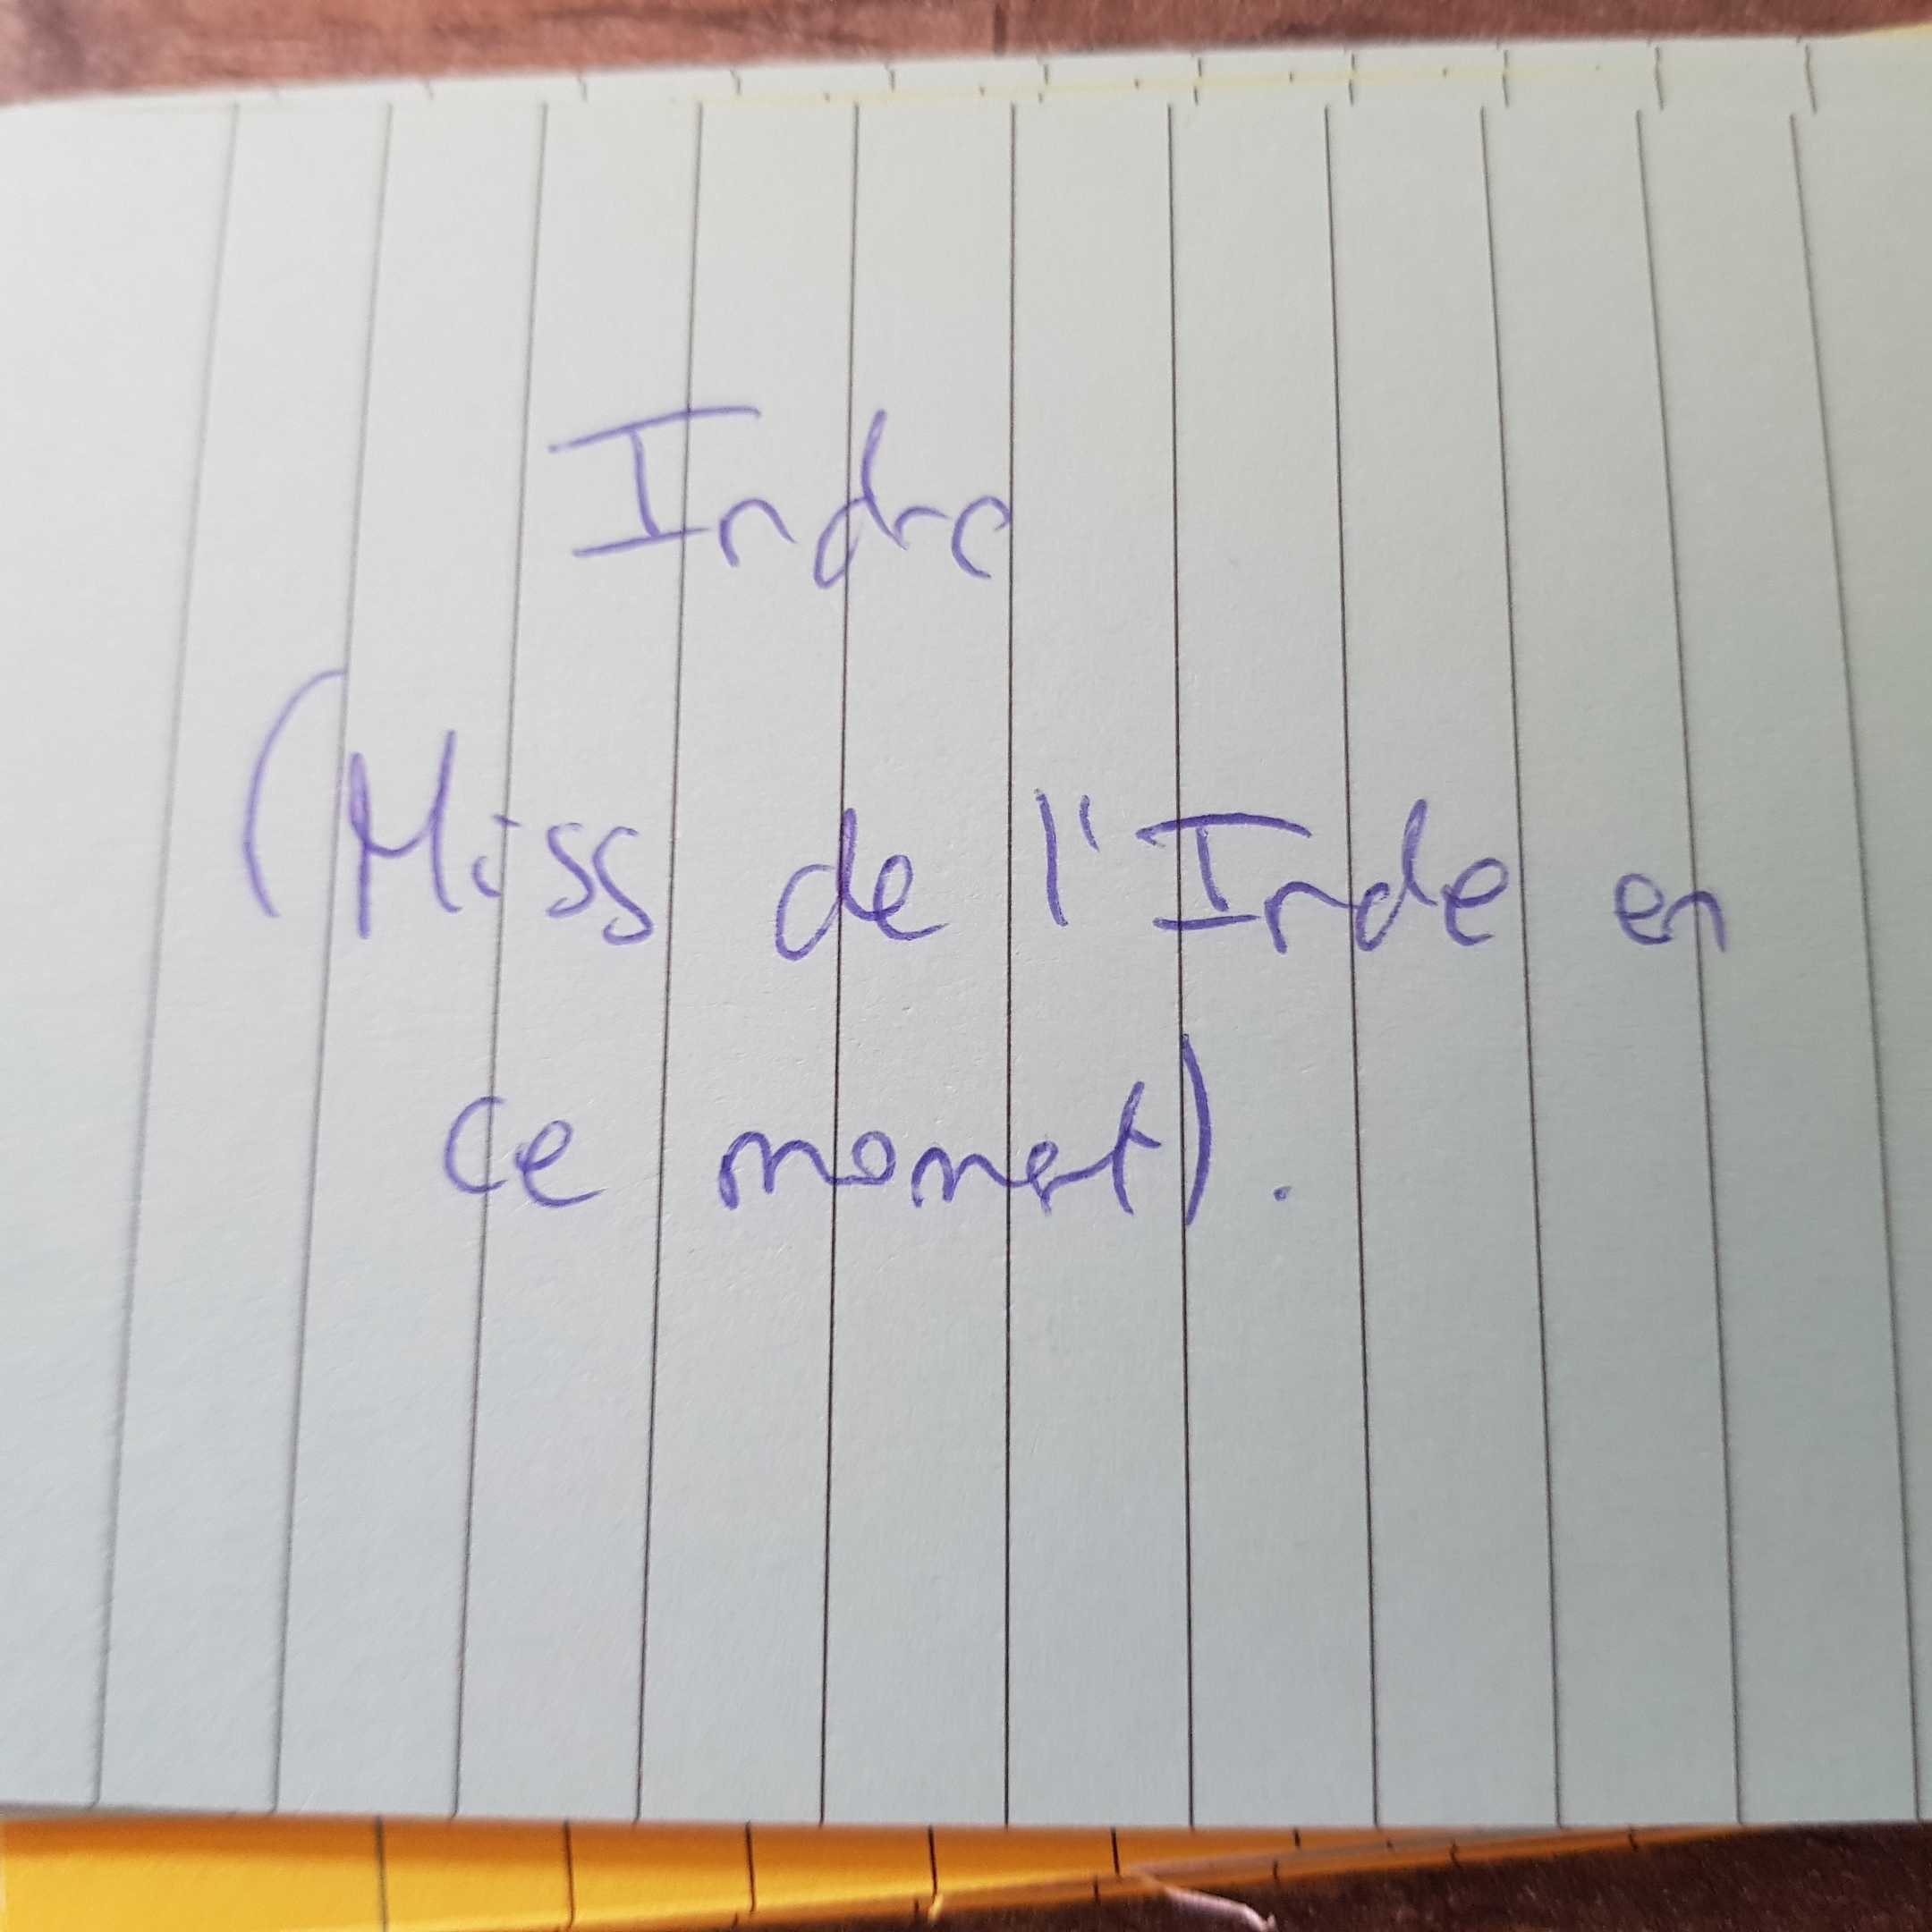 Indra
(Miss de l'Inde en
ce moment).